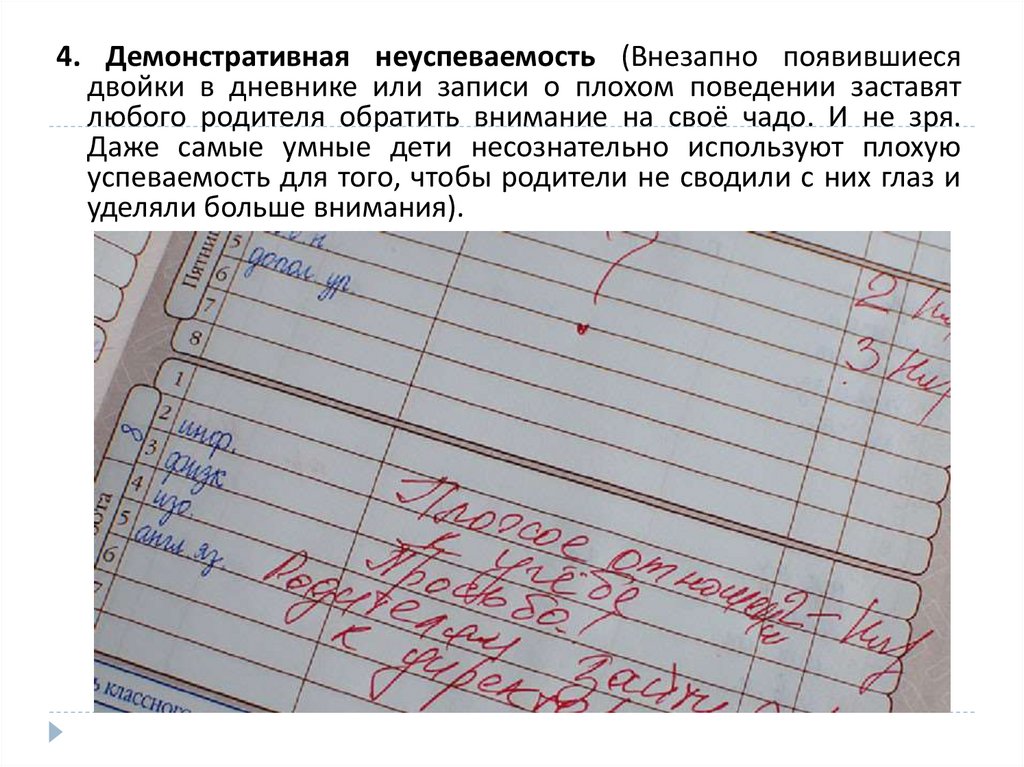 4. Демонстративная неуспеваемость (Внезапно появившиеся
двойки в дневнике или записи о плохом поведении заставят
любого родителя обратить внимание на своё чадо. И не зря.
Даже самые умные дети несознательно используют плохую
успеваемость для того, чтобы родители не сводили с них глаз и
уделяли больше внимания).
5
6 допол. ур.
7
8
1
2 инф.
3 физк
4 изо.
5 англ. яз.
6
2
3
Плохое отношение
к учёбе 2-
Просьба
Родителям зайти
к директо
классного